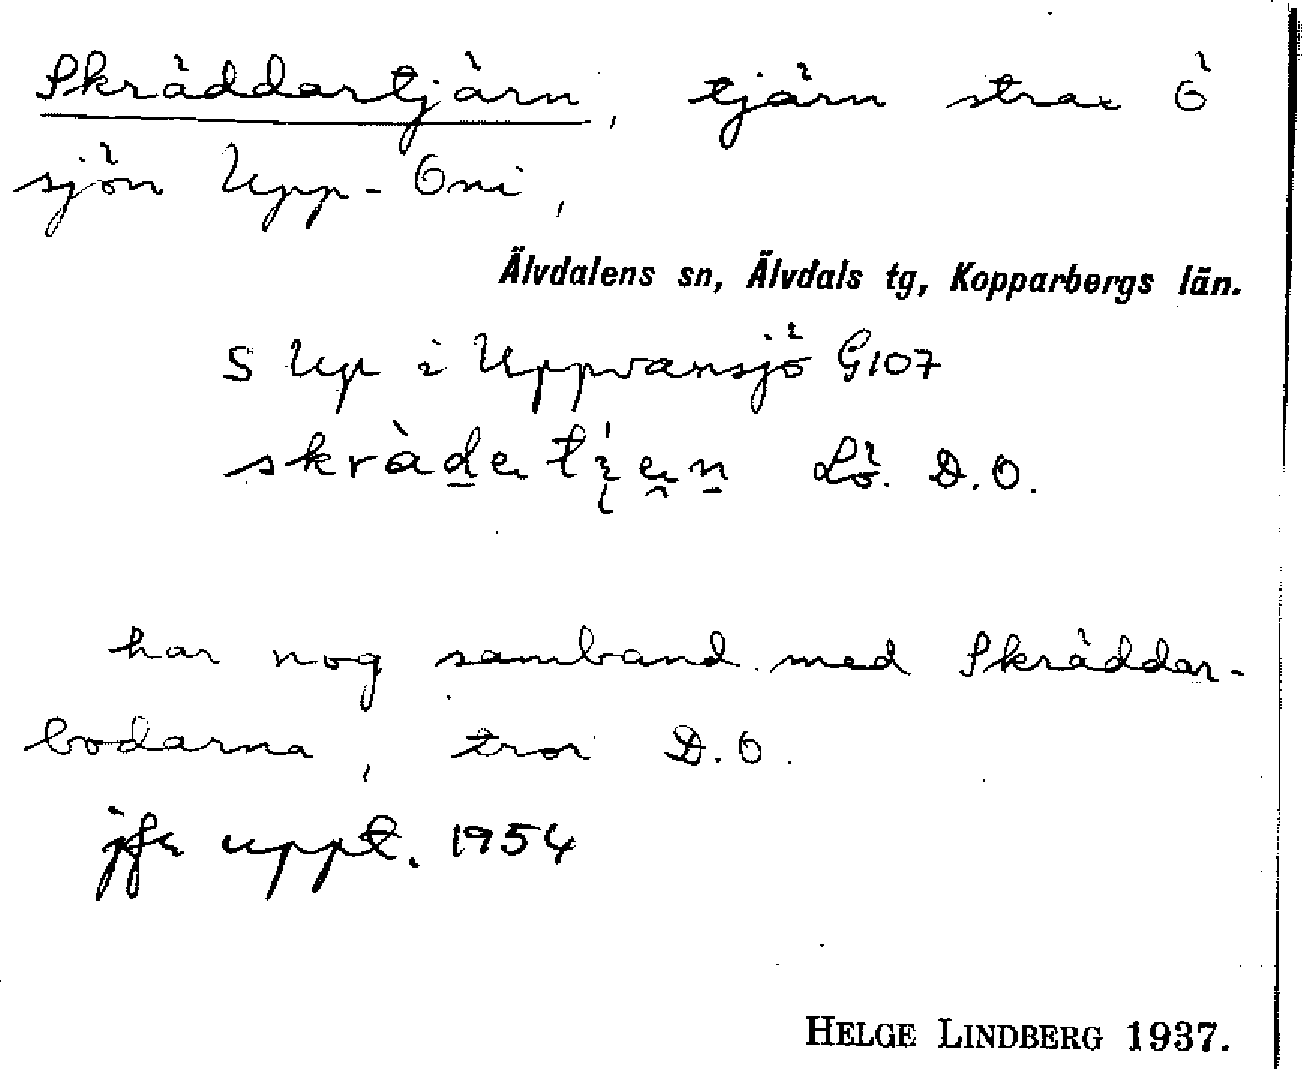 Skräddartjärn, tjärn strax Ö
sjön Upp-Oni,
Älvdalens sn, Älvdals tg, Kopparbergs län.
S Up i Uppvansjö G107
Lö. D.O.
har nog samband med Skräddar-
bodarna, tror D.O.
jfr uppt. 1954
HELGE LINDBERG 1937.